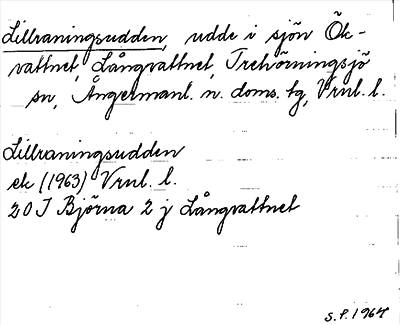 Lillraningsudden, udde i sjön Ök-
vattnet, Långvattnet, Trehörningsjö
sn, Ångermanl. n. doms. tg, Vrnl. l.
Lillraningsudden
ek (1963) Vrnl. l.
20 J Björna 2 j Långvattnet
S.F. 1964